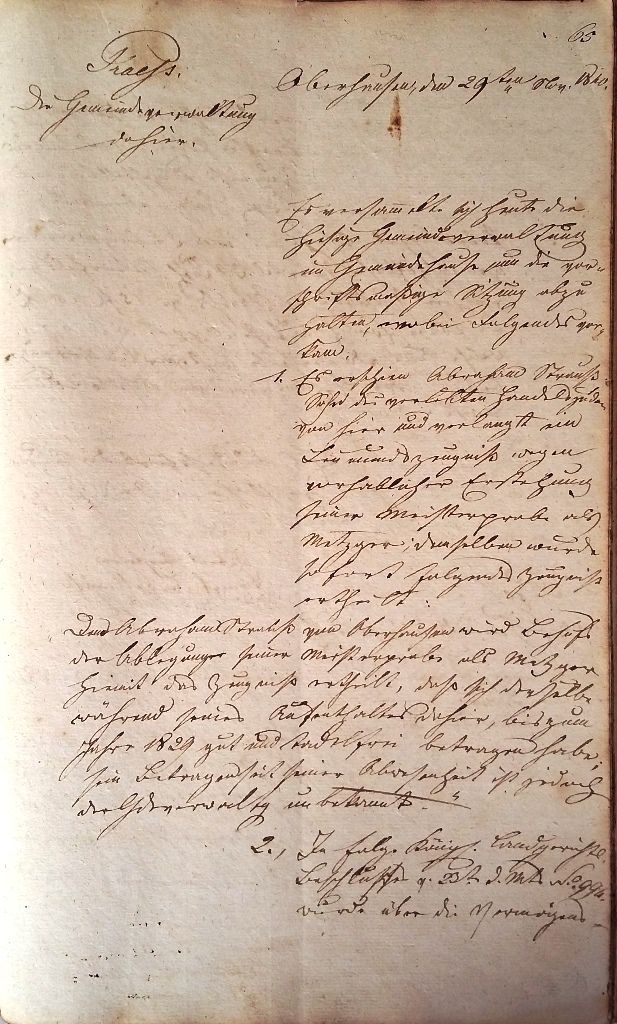 65
Praess.
Die Gemeindeverwaltung
dahier.
Oberhausen, den 29ten Nov. 1840.
Es versammelte sich heute die
hiesige Gemeindeverwaltung
im Gemeindehause um die vor-
schriftsmäßige Sitzung abzu
halten, wobei Folgendes vor-
kam.
1. Es erschien Abraham Strauß
Sohn des verlebten Handelsjuden
von hier und verlangt ein
Leumundszeugniß wegen
vorhablicher Erstehung
seiner Meisterprobe als
Metzger; demselben wurde
sofort folgendes Zeugniß
ertheilt:
Dem Abraham Strauß von Oberhausen wird Behufs
der Ablegung seiner Meisterprobe als Metzger
hiemit das Zeugniß ertheilt, daß sich derselbe
während seines Aufenthaltes dahier, bis zum
Jahre 1829 gut und tadelfrei betragen habe;
sein Betragen seit seiner Abwesenheit ist jedoch
der Gdeverwaltg unbekannt.
2., In Folge Königl. Landgerichtl.
Beschlusses v. d. Mts No 994.
wurde über die Vermögens-